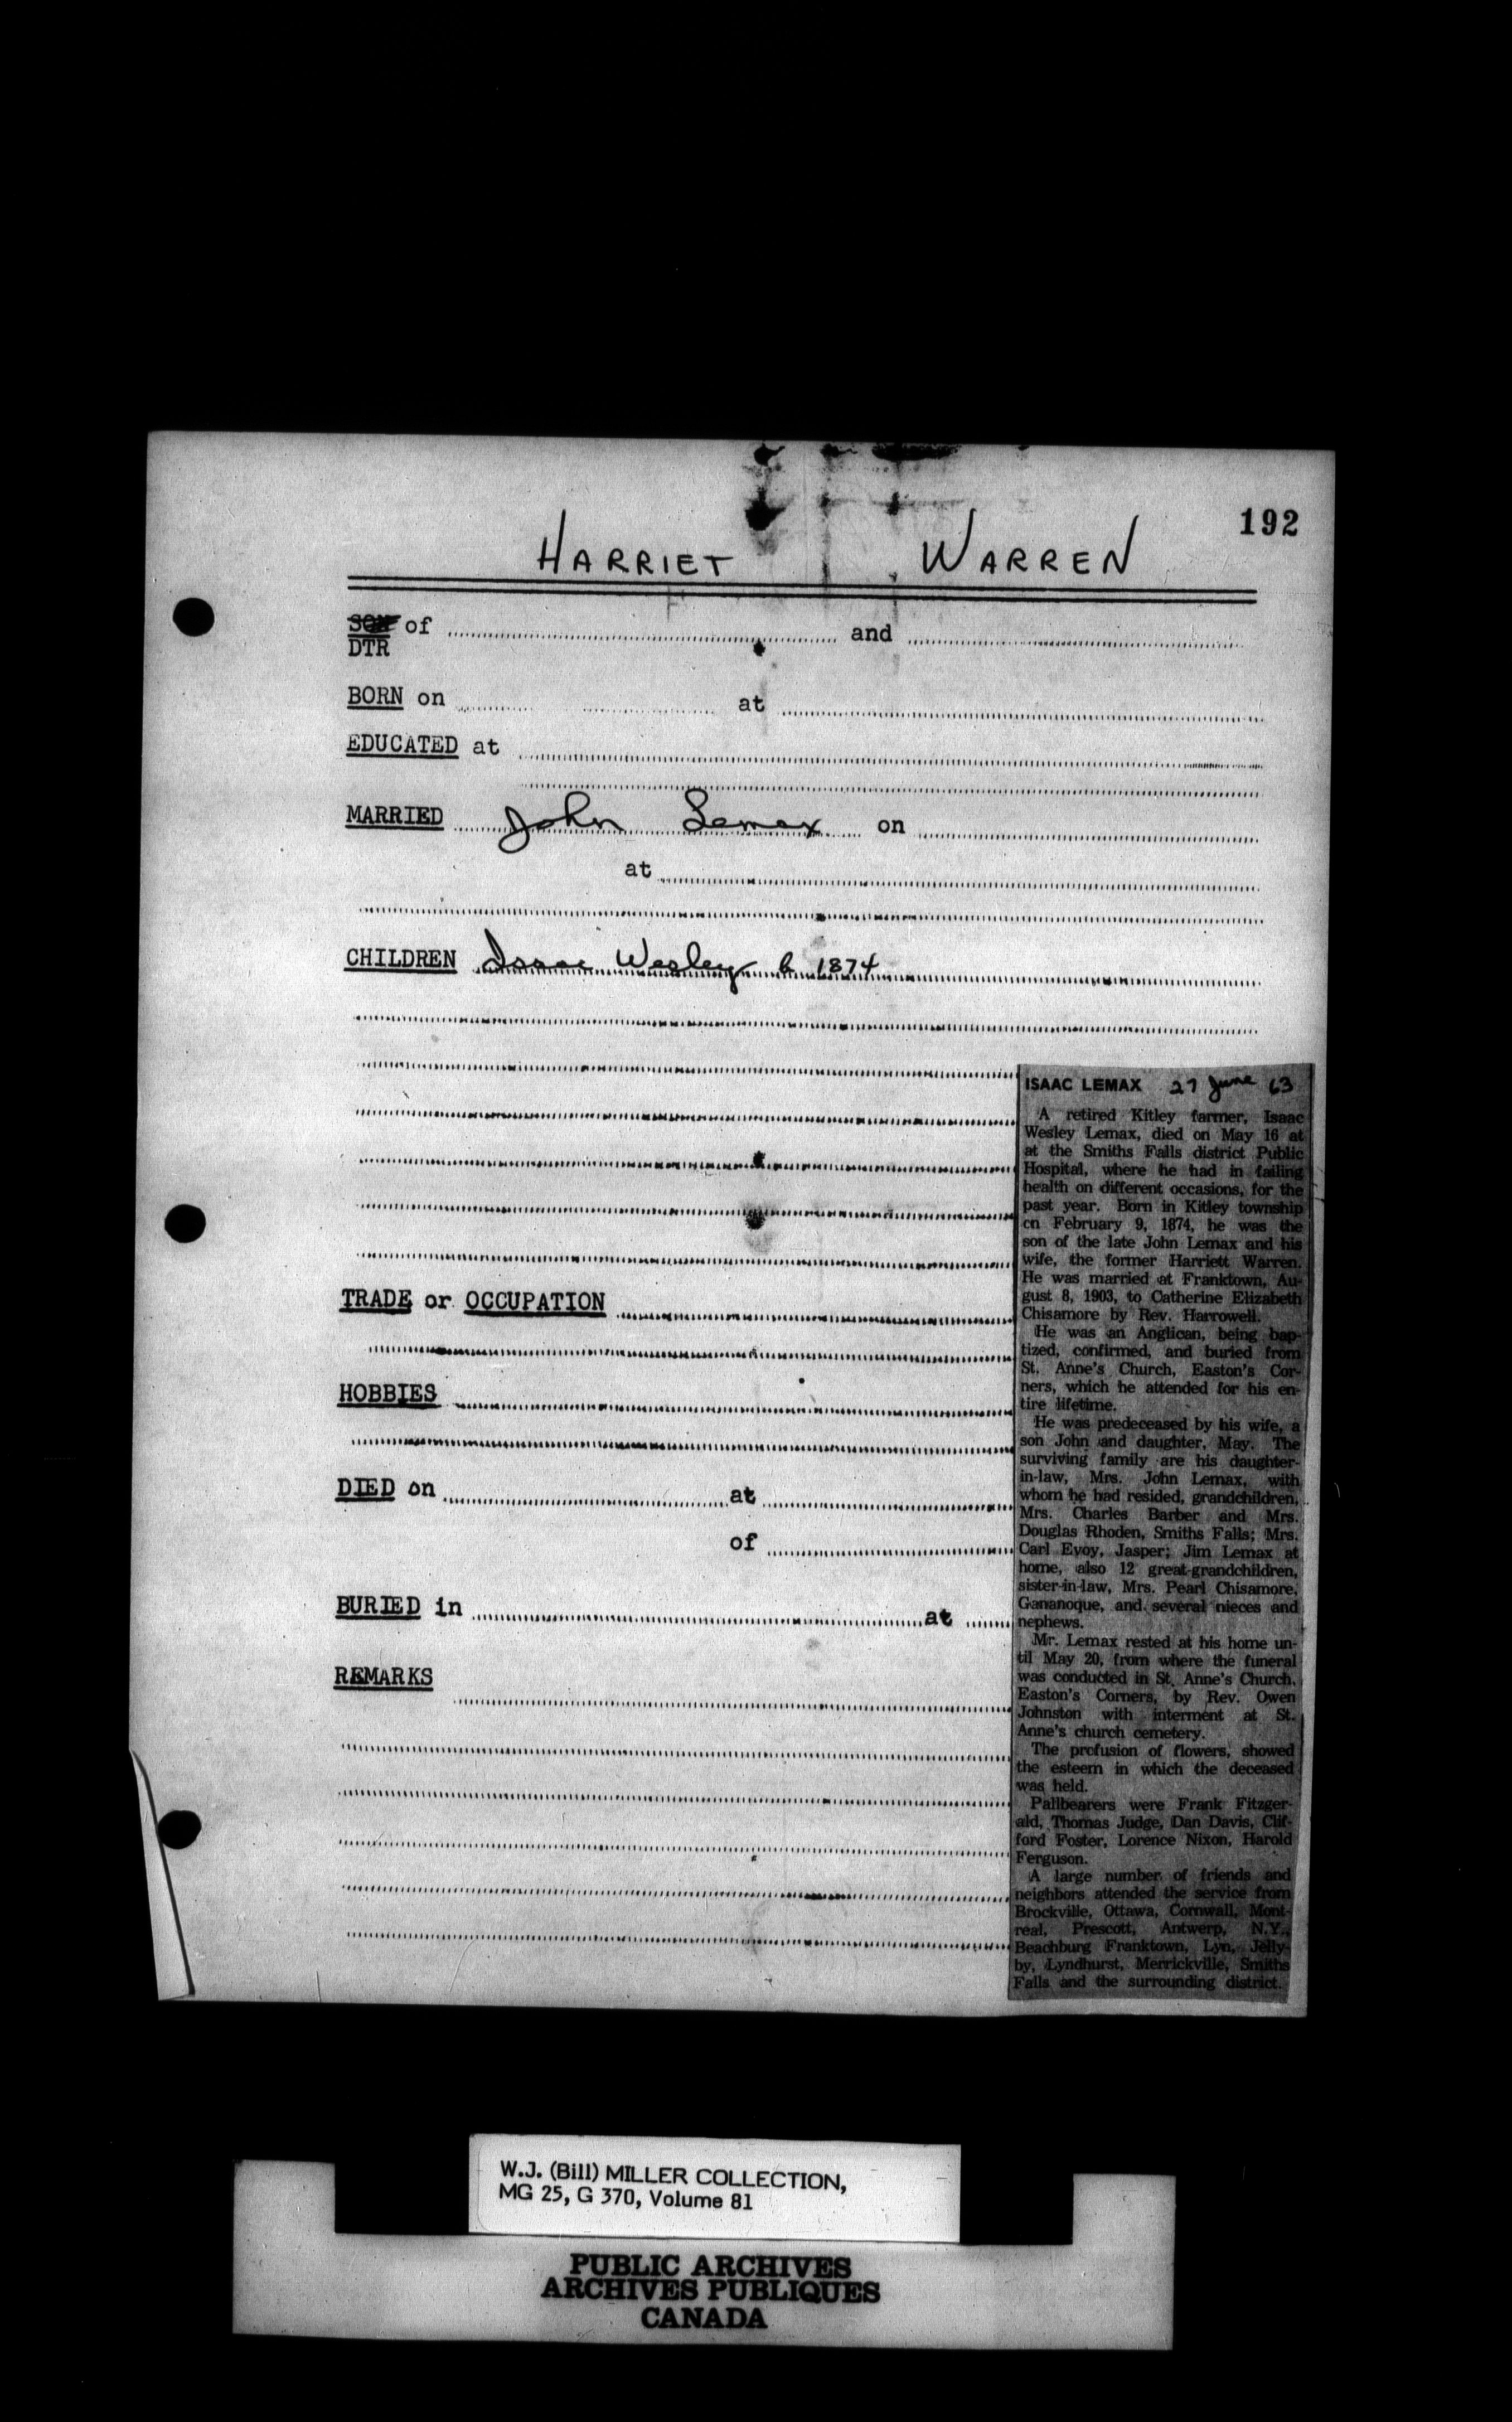 192
HARRIET WARREN
SON of and
DTR
BORN on at
EDUCATED at
MARRIED John Lemax on
at
CHILDREN Isaac Wesley b 1874
ISAAC LEMAX 27 June 63
A retired Kitley farmer, Isaac
Wesley Lemax, died on May 16 at
at the Smiths Falls district Public
Hospital, where he had in failing
health on different occasions, for the
past year. Born in Kitley township
on February 9, 1874, he was the
son of the late John Lemax and his
wife, the former Harriett Warren.
He was married at Franktown, Au-
gust 8, 1903, to Catherine Elizabeth
Chisamore by Rev. Harrowell.
He was an Anglican, being bap-
tized, confirmed, and buried from
St. Anne's Church, Easton's Cor-
ners, which he attended for his en-
tire lifetime.
He was predeceased by his wife, a
son John and daughter, May. The
surviving family are his daughter-
in-law, Mrs. John Lemax, with
whom he had resided, grandchildren,
Mrs. Charles Barber and Mrs.
Douglas Rhoden, Smiths Falls; Mrs.
Carl Evoy, Jasper; Jim Lemax at
home, also 12 great-grandchildren,
sister-in-law, Mrs. Pearl Chisamore,
Gananoque, and several nieces and
nephews.
Mr. Lemax rested at his home un-
til May 20, from where the funeral
was conducted in St. Anne's Church,
Easton's Corners, by Rev. Owen
Johnston with interment at St.
Anne's church cemetery.
The profusion of flowers, showed
the esteem in which the deceased
was held.
Pallbearers were Frank Fitzger-
ald, Thomas Judge, Dan Davis, Clif-
ford Foster, Lorence Nixon, Harold
Ferguson.
A large number of friends and
neighbors attended the service from
Brockville, Ottawa, Cornwall, Mont-
real, Prescott, Antwerp, N.Y.,
Beachburg Franktown, Lyn, Jelly-
by, Lyndhurst, Merrickville, Smiths
Falls and the surrounding district.
TRADE or OCCUPATION
HOBBIES
DIED on at
of
BURIED in at
REMARKS
W.J. (Bill) MILLER COLLECTION,
MG 25, G 370, Volume 81
PUBLIC ARCHIVES
ARCHIVES PUBLIQUES
CANADA